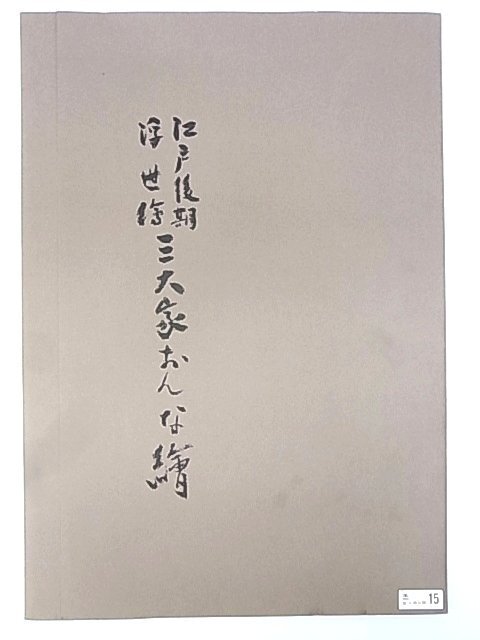 江戸後期
浮世繪
三大家おんな繪
15